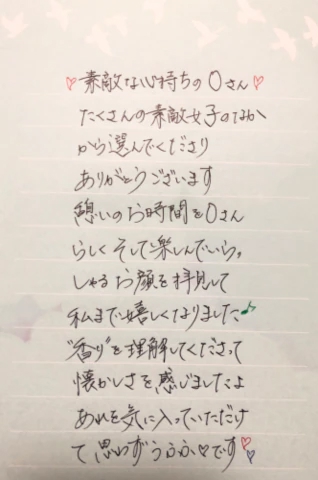 ♥素敵な心持ちのOさん♥
たくさんの素敵女子のなか
から選んでくださり
ありがとうございます
憩いのお時間をOさん
らしくそして楽しんでいらっ
しゃるお顔を拝見して
私まで嬉しくなりました♪
"香り"を理解してくださって
懐かしさを感じましたよ
あれを気に入っていただけ
て思わずうふふ♡です♥♥